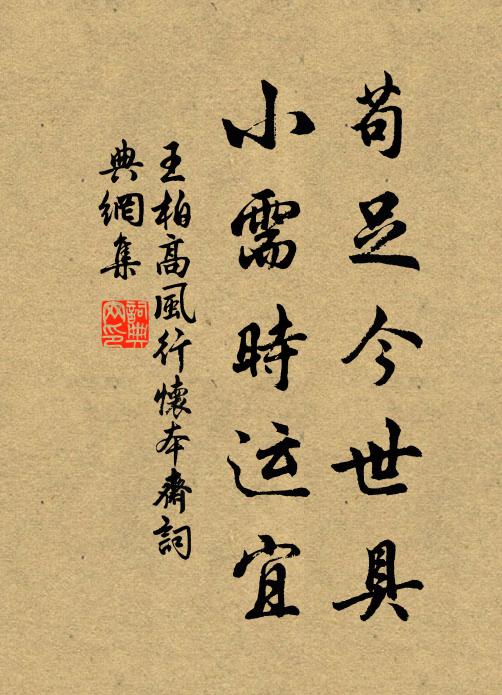 苟足今世具
小需時运宜
王柏高風行懷本齋詞
典網集
詞典網印